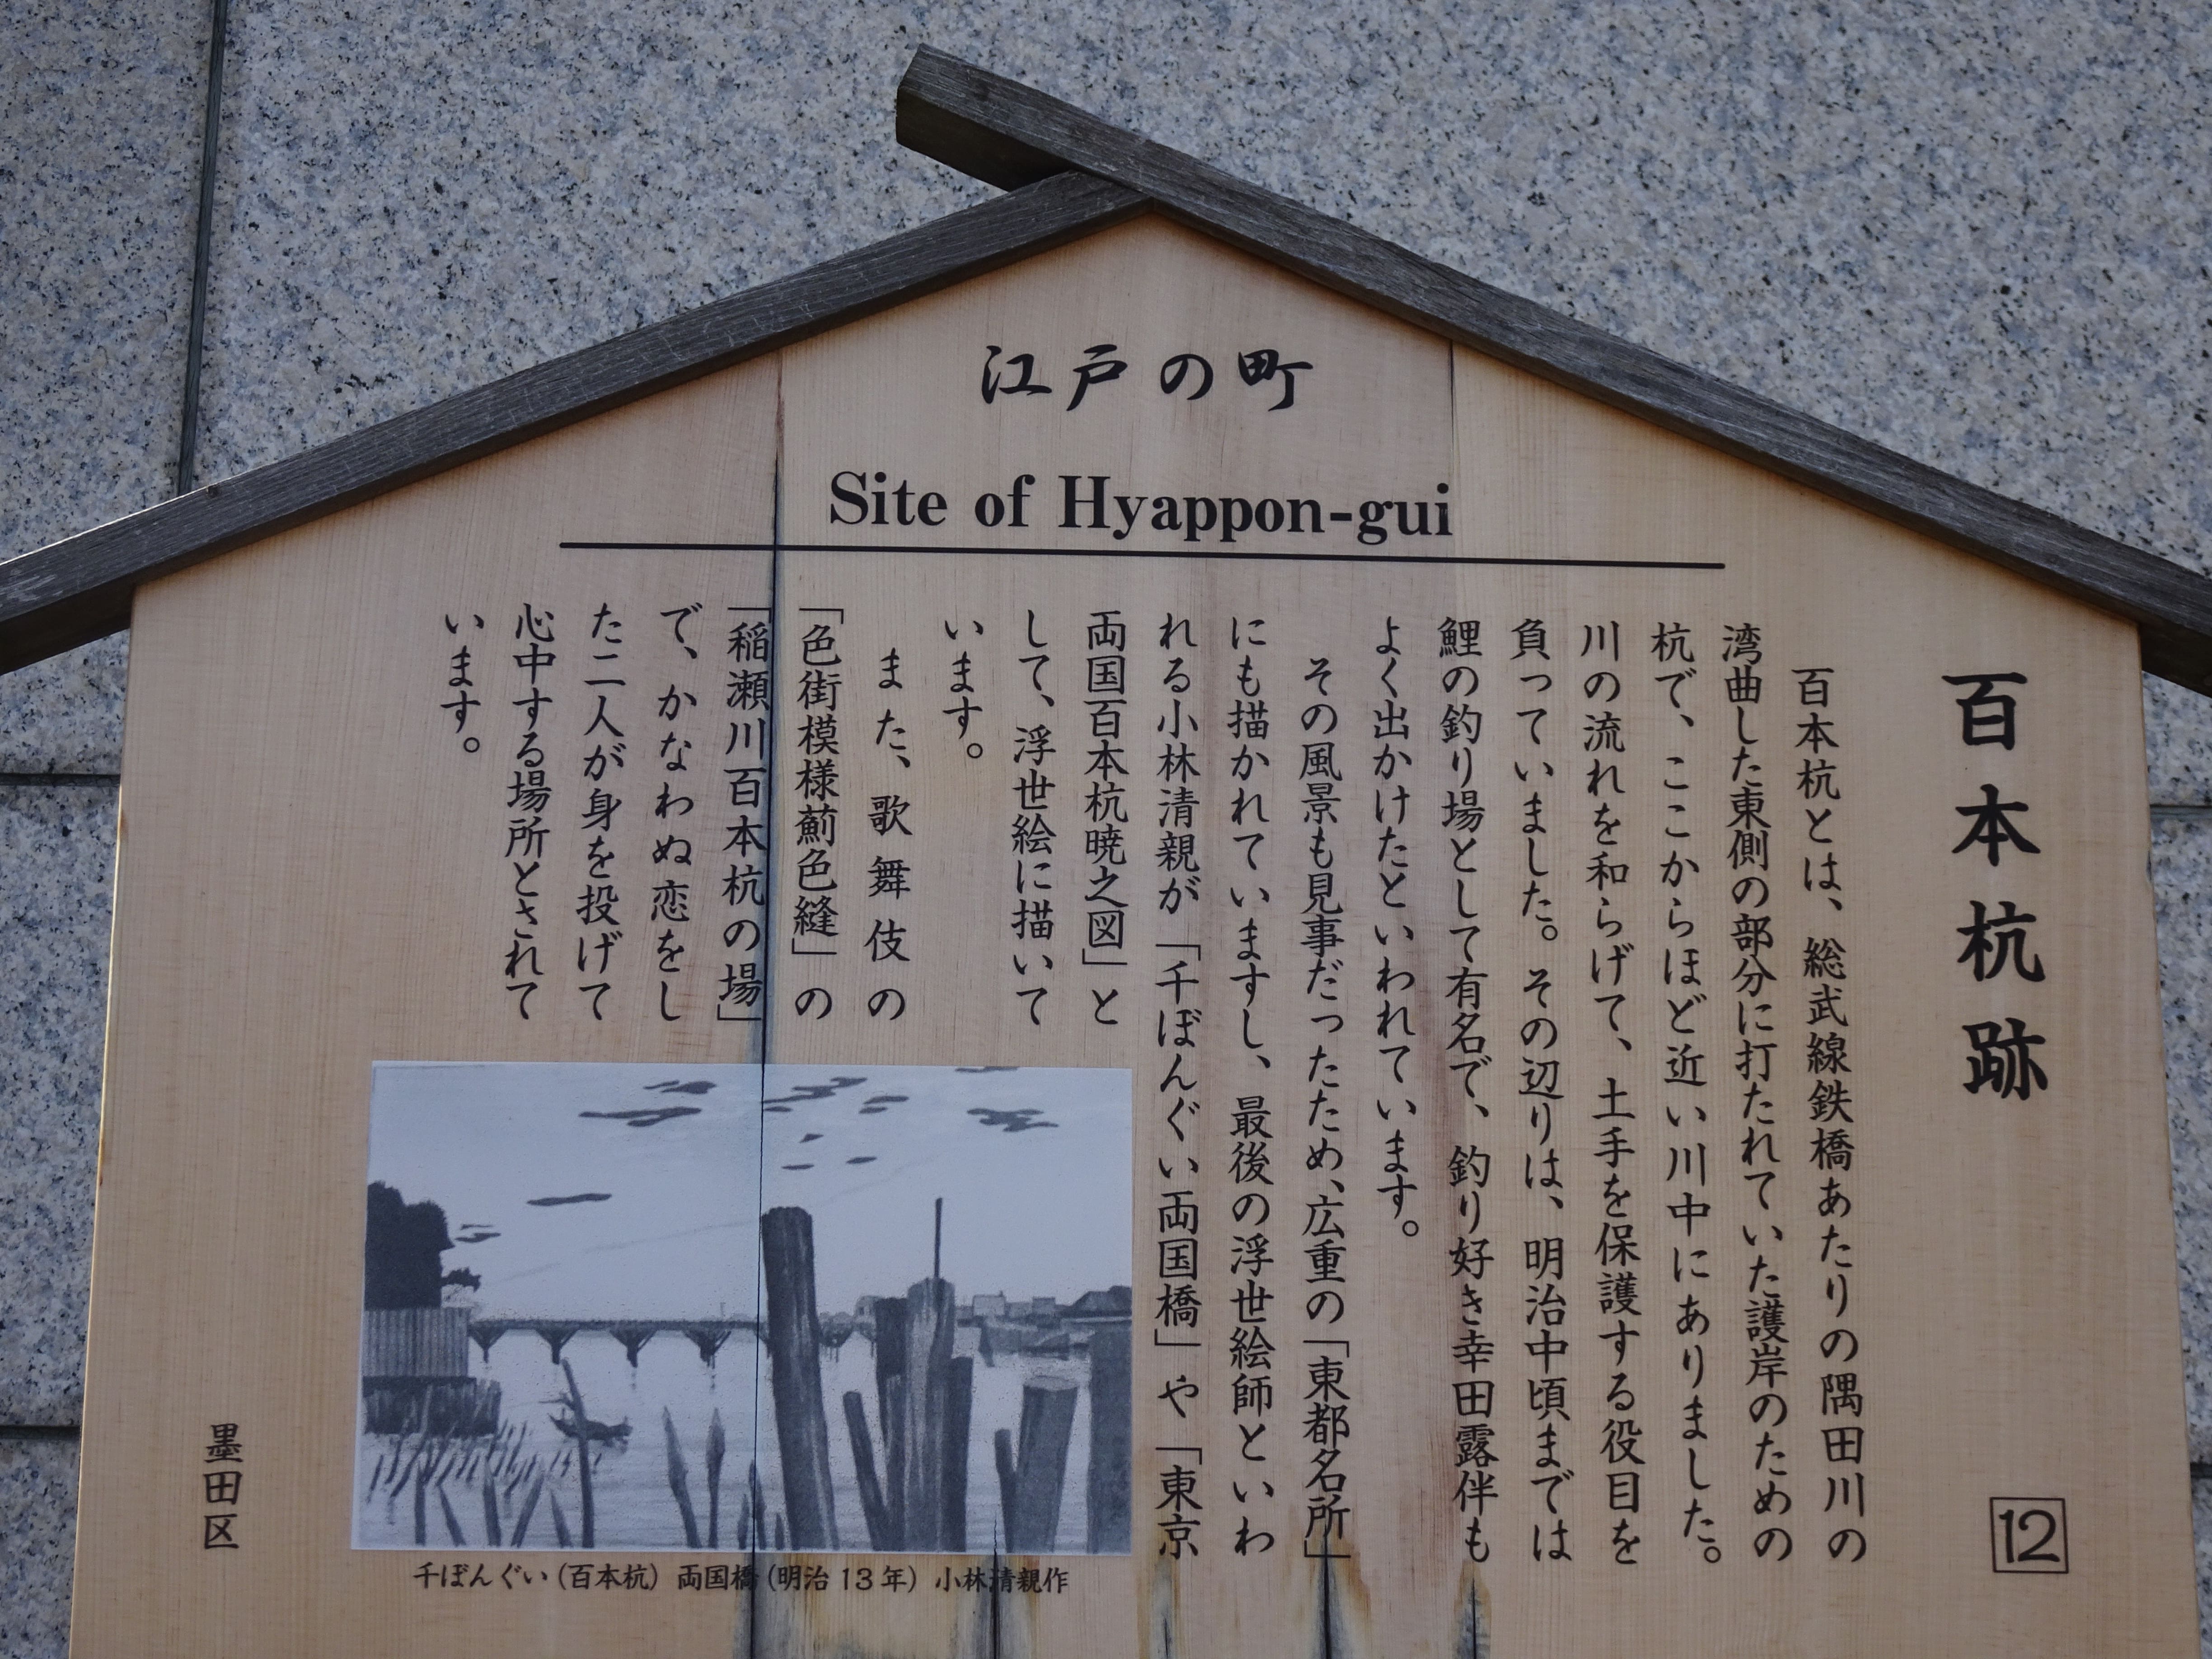 江戸の町
Site of Hyappon-gui
百本杭跡
12
百本杭とは、総武線鉄橋あたりの隅田川の
湾曲した東側の部分に打たれていた護岸のための
杭で、ここからほど近い川中にありました。
川の流れを和らげて、土手を保護する役目を
負っていました。その辺りは、明治中頃までは
鯉の釣り場として有名で、釣り好き幸田露伴も
よく出かけたといわれています。
その風景も見事だったため、広重の「東都名所」
にも描かれていますし、最後の浮世絵師といわ
れる小林清親が「千ぼんぐい両国橋」や「東京
両国百本杭暁之図」と
して、浮世絵に描いて
います。
また、歌舞伎の
「色街模様薊色縫」の
「稲瀬川百本杭の場」
で、かなわぬ恋をし
た二人が身を投げて
心中する場所とされて
います。
千ぼんぐい（百本杭）両国橋（明治13年）小林清親作
墨田区